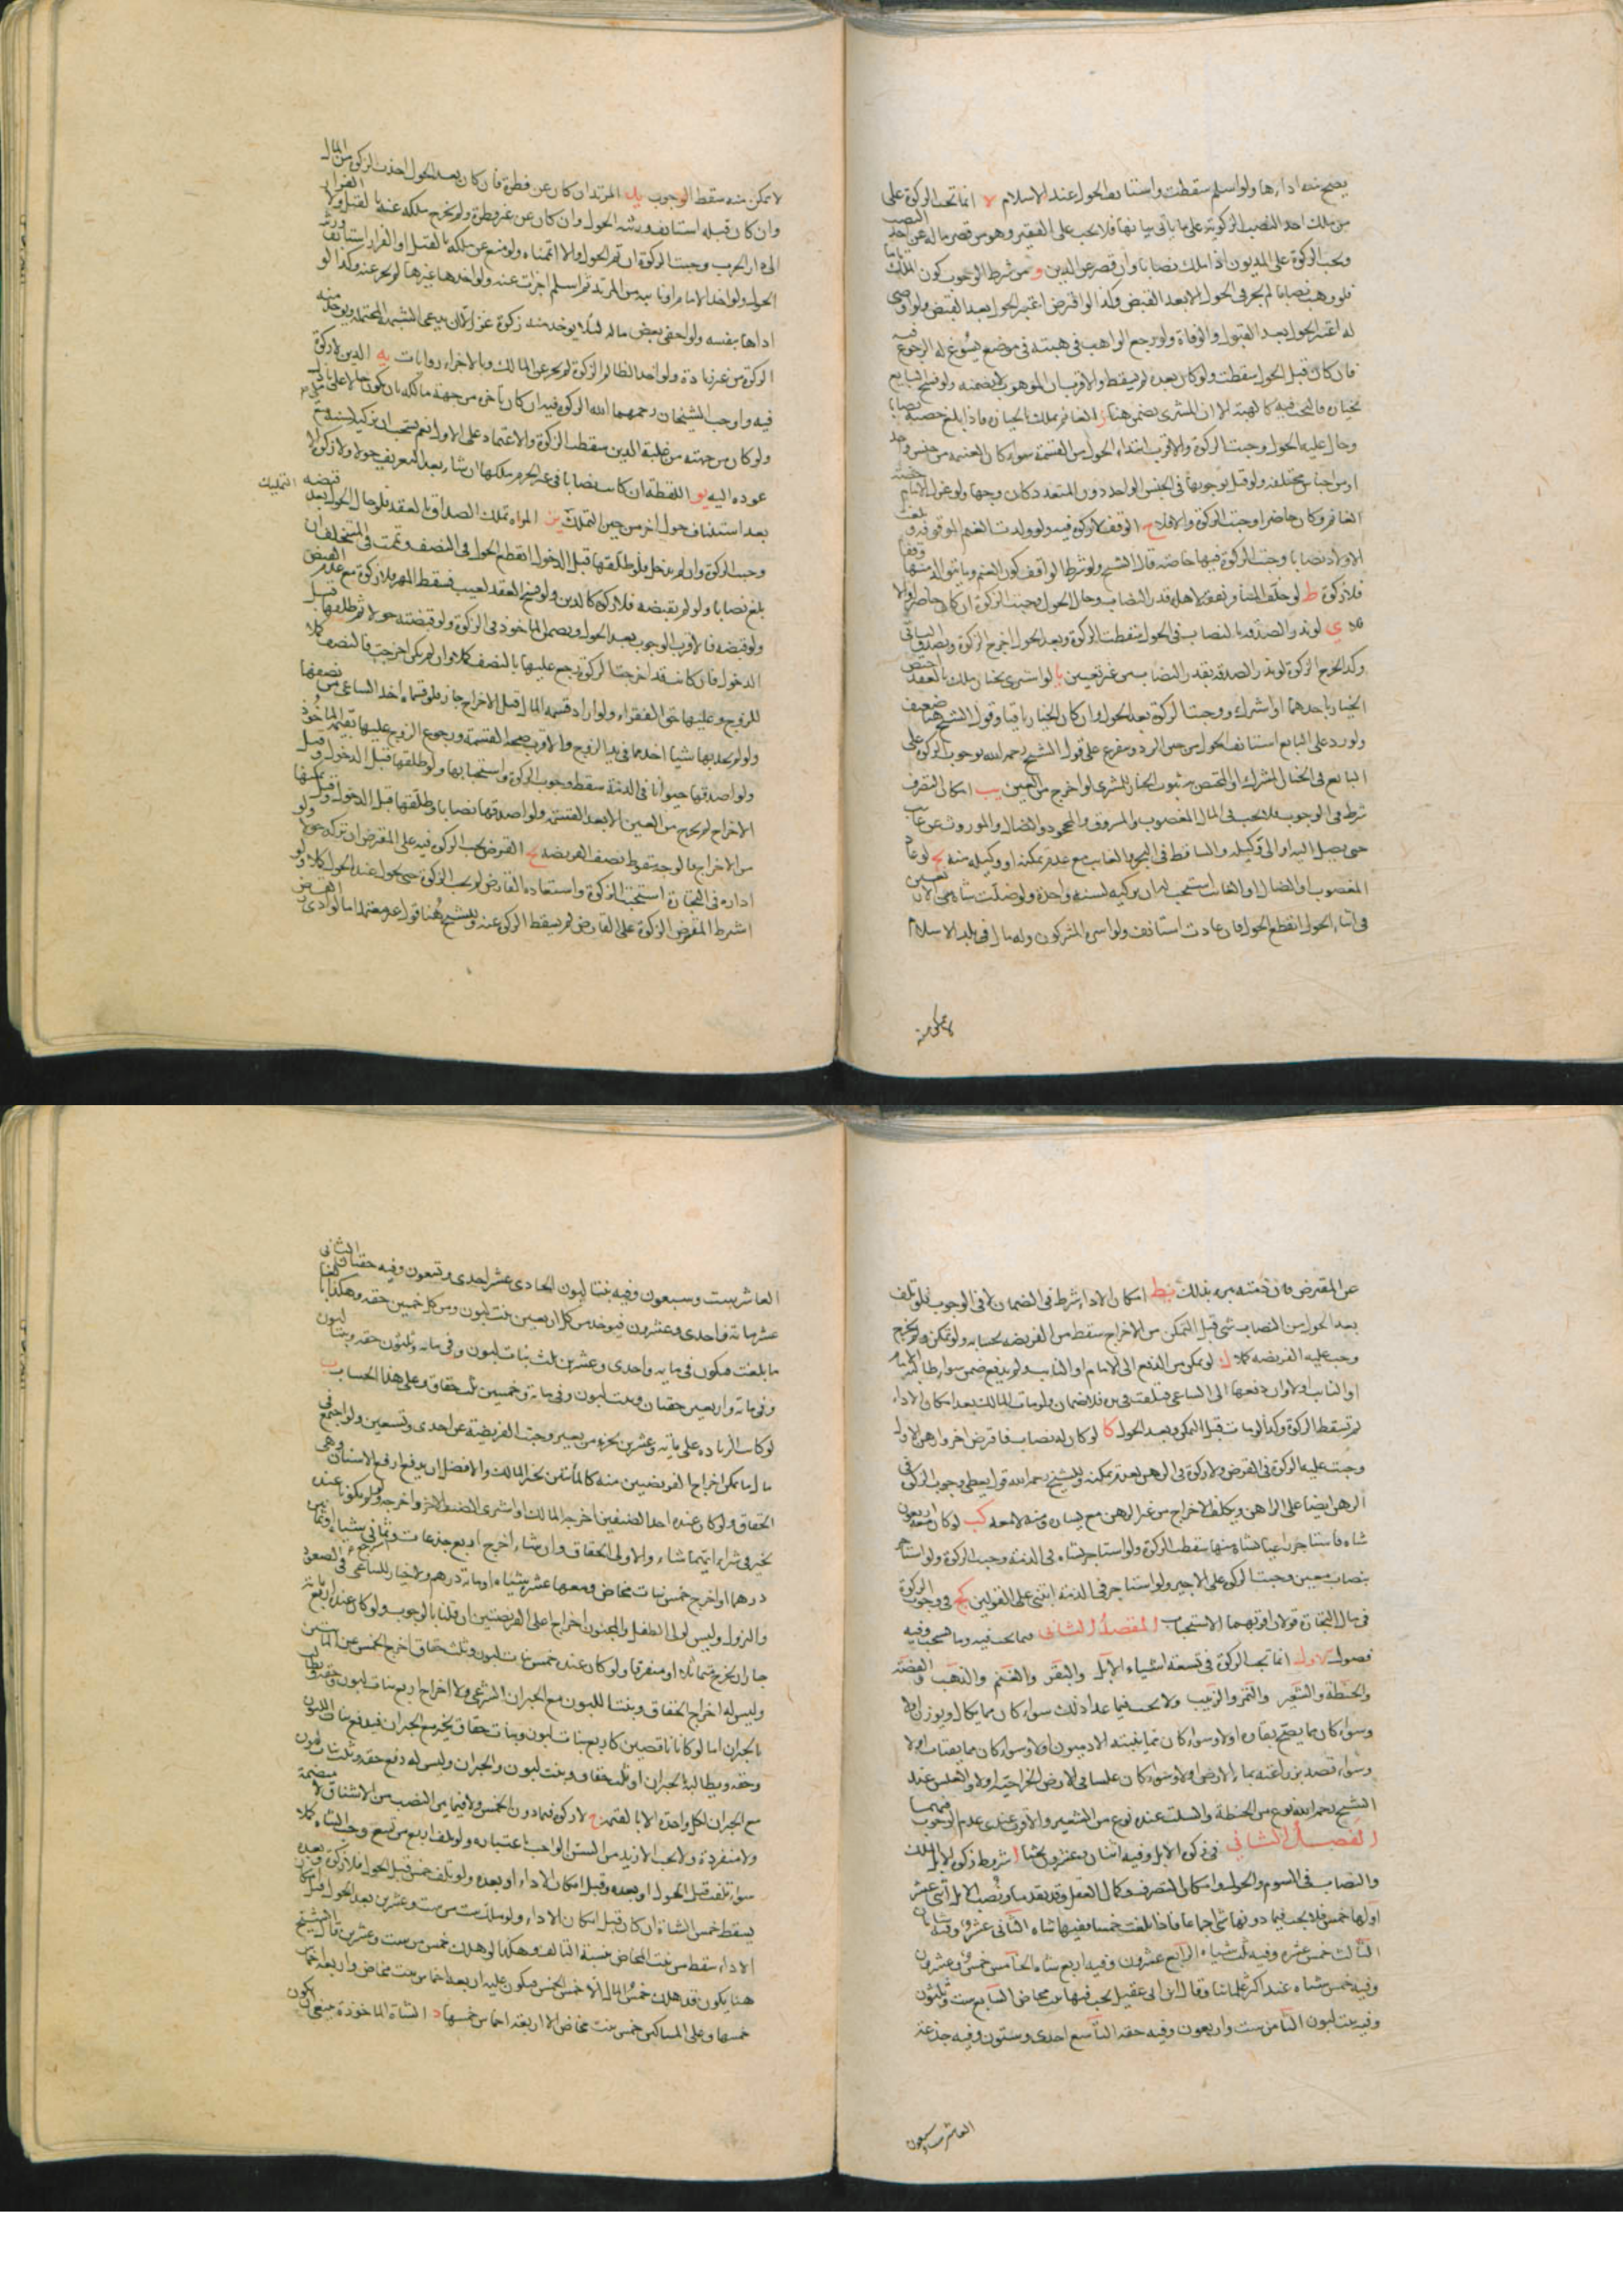 يصح منه اداءها ولو اسلم سقطت واستانف الحول عند الاسلام ه انما تجب الزكوة على
من ملك احد النصب الزكوية على ما ياتي بيانها فلا يجب على الفقير وهو من قصر ماله عن احد النصب
وتجب الزكوة على المديون اذا ملك نصابا وان قصر عن الدين و من شرط الوجوب كون الملك تاما
فلو وهب نصابا لم يجر في الحول الا بعد القبض وكذا لو اقترض اعتبر الحول بعد القبض ولو اوصى
له اعتبر الحول بعد القبول والوفاة ولو رجع الواهب في هبته في موضع يسوغ له الرجوع فيه
فان كان قبل الحول سقطت ولو كان بعده لم يسقط والاقرب ان الموهوب لا يضمنه ولو فسخ البايع
بخيار فالبحث فيه كالهبة الا ان المشتري يضمن هنا ز الغانم يملك بالحيازة فاذا بلغ حصته نصابا
وحال عليه الحول وجبت الزكوة والاقرب ابتداء الحول من القسمة سواء كان الغنيمة من جنس واحد
او من اجناس مختلفة ولو قيل بوجوبها في الجنس الواحد دون المتعدد كان وجها ولو عزل الامام حصته
الغانم وكان حاضرا وجبت الزكوة والا فلا ح الوقف لا زكوة فيه ولو ولدت الغنم الموقوفة وبلغت
الاولاد نصابا وجبت الزكوة فيها خاصة قال الشيخ ولو شرط الواقف كون الغنم وما يتوالد منها وقفا
فلا زكوة ط لو خلف المسافر نفقة لاهله قدر النصاب وحال الحول وجبت الزكوة ان كان حاضرا والا
فلا ي لو نذر الصدقة بالنصاب في الحول سقطت الزكوة وبعد الحول اخرج الزكوة وتصدق بالباقي
وكذا يخرج الزكوة لو نذر الصدقة بقدر النصاب من غير تعيين يا لو اشترى بخيار ملك بالعقد اختص
الخيار باحدهما او اشترك ووجبت الزكوة بعد الحول وان كان الخيار باقيا وقول الشيخ هنا ضعيف
ولو رد على البايع استانف الحول من حين الرد ومفرع على قول الشيخ رحمه الله بوجوب الزكوة على
البايع في الخيار المشترك او المختص ثبوت الخيار للمشتري لو اخرج من العين يب امكان التصرف
شرط في الوجوب فلا يجب في المال المغصوب والمسروق والمجحود والضال والموروث عن غايب
حتى يصل اليه او الى وكيله والساقط في البحر والغايب مع عدم تمكنه او وكيله منه يج لو عاد
المغصوب او الضال او الغائب استحب له ان يزكيه لسنة واحدة ولو ضلت شاة من الاربعين
في اثناء الحول انقطع الحول فان عادت استانف ولو اسره المشركون وله مال في بلد الاسلام
لا يمكن منه
لا تمكن منه سقط الوجوب يد المرتد ان كان عن فطرة فان كان بعد الحول اخذت الزكوة من المال
وان كان قبله استانف ورثته الحول وان كان عن غير فطرة ولم يخرج ملكه عنه بالقتل ولا الفرار
الى دار الحرب وجبت الزكوة ان تم الحول والا اتممناه ولو منع عن ملكه بالقتل او الفرار استانف ورثته
الحول ولو اخذ الامام او نايبه من المرتد ثم اسلم اجزات عنه ولو اخذها غيرهما لم يجز عنه وكذا لو
اداها بنفسه ولو اخفى بعض ماله لئلا يوخذ منه زكوة عزر الا ان يدعي الشبهة المحتملة ويوخذ منه
الزكوة من غير زيادة ولو اخذ الظالم الزكوة لم يجز عن المالك وبالاجزاء روايات يه الدين لا زكوة
فيه واوجب الشيخان رحمهما الله الزكوة فيه ان كان تاخره من جهة مالكه بان يكون حالا على باذل
ولو كان من جهته من عليه الدين سقطت الزكوة والاعتماد على الاول نعم يستحب ان يزكيه لسنة مع
عوده اليه يو اللقطة ان كانت نصابا في غير الحرم ملكها ان شاء بعد التعريف حولا ولا زكوة الا
بعد استئناف حول اخر من حين التملك يز المراة تملك الصداق بالعقد فلو حال الحول بعد قبضه
التمليك
وجبت الزكوة وان لم يدخل فلو طلقها قبل الدخول انقطع الحول في النصف وثبت في المتخلف ان
بلغ نصابا ولو لم يقبضه فلا زكوة كالدين ولو فسخ العقد لعيب فسقط المهر فلا زكوة مع عدم القبض
ولو قبضه فالاقرب الوجوب بعد الحول ويضمن الماخوذ في الزكوة ولو قبضته حولا ثم طلقها قبل
الدخول فان كانت قد اخرجت الزكوة رجع عليها بالنصف كملا وان لم يكن اخرجت فالنصف كملا
للزوج وعليها حق الفقراء ولو اراد قسمة المال قبل الاخراج جاز فلو قسماه اخذ الساعي من نصفها
ولو لم يجد بها شيئا اخذ مما في يد الزوج والاقرب صحة القسمة ورجوع الزوج عليها بقيمة الماخوذ
ولو اصدقها حيوانا في الذمة سقط وجوب الزكوة واستحبابها ولو طلقها قبل الدخول وقبل
الاخراج لم يخرج من العين الا بعد القسمة ولو اصدقها نصابا وطلقها قبل الدخول وقبل تمكنها
من الاخراج فالوجه سقوط نصف الفريضة يح القرض يجب الزكوة فيه على المقترض ان تركه حولا ولو
اداره في التجارة استحبت الزكوة واستعاده القارض لم يجب الزكوة حتى يحول عنده الحول كملا ولو
اشترط المقرض الزكوة على القارض لم يسقط الزكوة عنه وللشيخ هنا قول غير معتمد اما لو ادى القارض
عن المقترض فان ذمته تبرء بذلك يط امكان الاداء شرط في الضمان لا في الوجوب فلو تلف
بعد الحول من النصاب شي قبل التمكن من الاخراج سقط من الفريضة بحسابه ولو تمكن ولم يخرج
وجب عليه الفريضة كملا ك لو تمكن من الدفع الى الامام او النايب ولم يدفع ضمن سواء طالبه الامام
او النايب اولا وان دفعها الى الساعي فتلفت في يده فلا ضمان ولو مات المالك بعد امكان الاداء
لم تسقط الزكوة وكذا لو مات قبل التمكن وبعد الحول كا لو كان له نصاب فاقترض اخر وارهن الاول
وجبت عليه الزكوة في القرض ولا زكوة في الرهن بعدم تمكنه وللشيخ رحمه الله قول يعطي وجوب الزكوة في
الرهن ايضا على الراهن ويكلف الاخراج من غير الرهن مع يساره ومنه لا معه كب لو كان معه اربعون
شاة فاستاجر راعيا بشاة منها سقطت الزكوة ولو استاجر بشاة في الذمة وجبت الزكوة ولو استاجر
بنصاب معين وجبت الزكوة على الاجير ولو استاجر في الذمة ابتنى على القولين كج في وجوب الزكوة
في مال التجارة قولان اقربهما الاستحباب المقصد الثاني فيما يجب فيه وما يستحب وفيه
فصول الاول انما تجب الزكوة في تسعة اشياء الابل والبقر والغنم والذهب والفضة
والحنطة والشعير والتمر والزبيب ولا يجب فيما عدا ذلك سواء كان مما يكال او يوزن اولا
وسواء كان مما يصح بقاءه اولا وسواء كان مما ينبته الادميون اولا وسواء كان مما يقتات اولا
وسواء قصد بزراعته نماء الارض اولا وسواء كان علسا في الارض الخراجية اولا والعلس عند
الشيخ رحمه الله نوع من الحنطة والسلت عنده نوع من الشعير والاقوى عندي عدم الوجوب فيهما
الفصل الثاني في زكوة الابل وفيه اثنان وعشرون بحثا ا شروط زكوة الابل الملك
والنصاب في السوم والحول وامكان التصرف وكمال العقل وقد تقدما ونصب الابل اثني عشر
اولها خمس فلا يجب فيما دونها شي اجماعا فاذا بلغت خمسا ففيها شاة الثاني عشر وفيه شاتان
الثالث خمس عشرة وفيه ثلث شياه الرابع عشرون وفيه اربع شياه الخامس خمس وعشرون
وفيه خمس شياه عند اكثر علمائنا وقال ابن ابي عقيل يجب فيها بنت مخاض السابع ست وثلثون
وفيه بنت لبون الثامن ست واربعون وفيه حقة التاسع احدى وستون وفيه جذعة
العاشر ست وسبعون
العاشر ست وسبعون وفيه بنتا لبون الحادي عشر احدى وتسعون وفيه حقتان الثاني
عشر مائة واحدى وعشرون فيوخذ من كل اربعين بنت لبون ومن كل خمسين حقة وهكذا بالغا
ما بلغت فيكون في مايه واحدى وعشرين ثلث بنات لبون وفي مايه وثلثون حقة وبنتا لبون
وفي مائة واربعين حقتان وبنت لبون وفي مائة وخمسين ثلث حقاق وعلى هذا الحساب ب
لو كانت الزيادة على مائة وعشرين بجزء من بعير وجبت الفريضة عن احدى وتسعين ولو اجتمع في
مال ما يمكن اخراج الفريضتين منه كالمائتين تخير المالك والافضل ان يدفع ارفع الاسنان وهي
الحقاق ولو كان عنده احد الصنفين اخرجه المالك او اشترى الصنف الاخر واخرجه ولو لم يكونا عنده
تخير في شراء ايهما شاء والاولى الحقاق وان شاء اخرج اربع جذعات وثماني شياه او ثمانين
درهما او اخرج خمس بنات مخاض ومعها عشر شياه او مائة درهم ولا خيار للساعي في الصعود
والنزول وليس لولي الطفل والمجنون اخراج اعلى الفريضتين ان قلنا بالوجوب ولو كان عنده اربعمائة
جاز ان يخرج متماثلا او متفرقا ولو كان عنده خمس بنات لبون وثلث حقاق اخرج الخمس عن المائتين
وليس له اخراج الحقاق وبنتا اللبون مع الجبران الشرعي ولا اخراج اربع بنات لبون وحقة ويطالب
بالجبران اما لو كانا ناقصين كاربع بنات لبون وثلث حقاق تخير مع الجبران فيدفع بنات اللبون
وحقه ويطالب بالجبران او ثلث حقاق وبنت لبون والجبران وليس له دفع حقة وثلث بنات لبون
مع الجبران لكل واحدة الا بالقيمة ج لا زكوة فيما دون الخمس ولا فيما بين النصب من الاشناق لا منضمة
ولا منفردة ولا يجب الازيد من السن الواجب باعتباره ولو تلف اربع من تسع وجب الشاة كملا
سواء تلفت قبل الحول او بعده وقبل امكان الاداء او بعده ولو تلف خمس قبل الحول فلا زكوة وبعده
يسقط خمس الشاة ان كان قبل امكان الاداء ولو هلكت ست من ست وعشرين بعد الحول قبل امكان
الاداء سقط من بنت المخاض بنسبة التالف وهكذا لو هلك خمس من ست وعشرين قال الشيخ
هنا يكون قد هلك خمس المال الا خمس الخمس فيكون عليه اربعة اخماس بنت مخاض واربعة اخماس
خمسها وعلى المساكين خمس بنت مخاض الا اربعة اخماس خمسها د الشاة الماخوذة ينبغي ان يكون